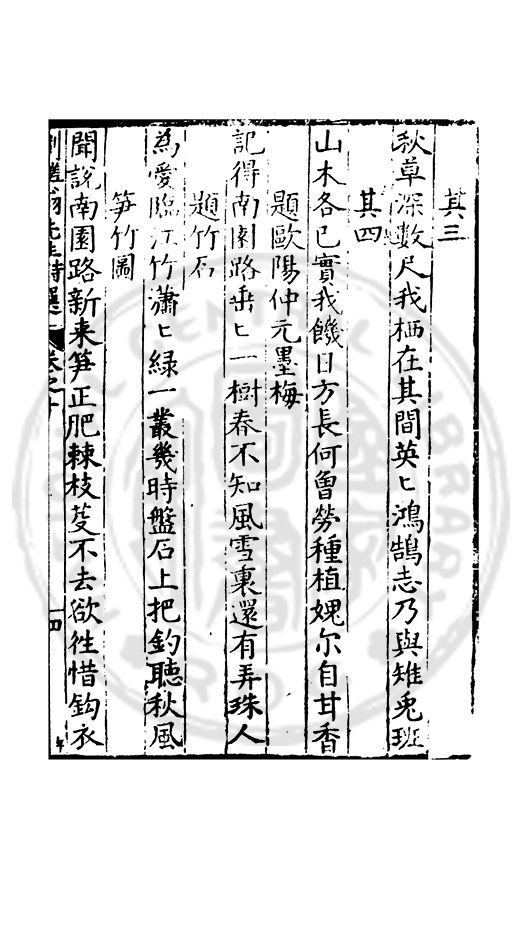 其三
秋草深數尺我栖在其間英〻鴻鵠志乃與雉兎班
其四
山木各已實我饑日方長何曾勞種植媿尔自甘香
題歐陽仲元墨梅
記得南園路垂〻一樹春不知風雪裏還有弄珠人
題竹石
為愛臨江竹瀟〻緑一叢幾時盤石上把釣聽秋風
笋竹圖
聞說南園路新来笋正肥棘枝芟不去欲徃惜鈎衣
先生詩選 卷之十 四
CENTRAL LIBRARY